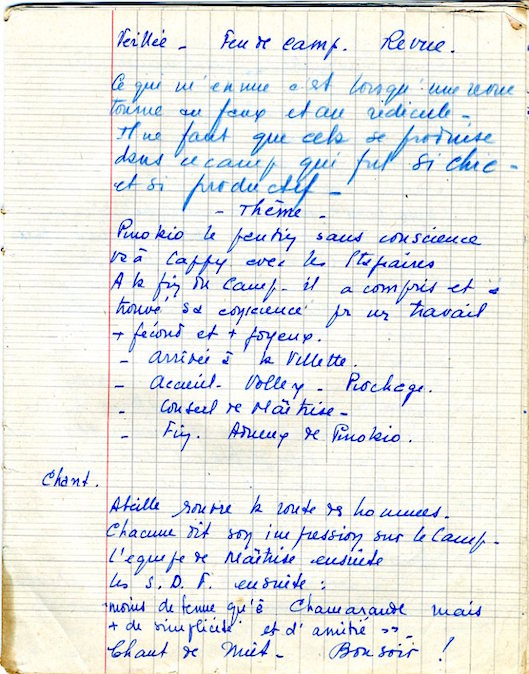 Veillée - Feu de camp. Revue.
Ce qui m'ennuie c'est lorsqu'une revue
tourne au faux et au ridicule -
Il ne faut que cela se produise
dans ce camp qui fut si chic -
et si productif -
- Thème -
Pinokio le pantin sans conscience
va à Cappy avec les Stagiaires
A la fin du Camp - il a compris et a
trouvé sa conscience pr un travail
+ fécond et + joyeux.
- Arrivée à la Villette.
- Accueil - Volley - Piochage.
- Conseil de Maîtrise -
- Fin. Adieux de Pinokio.
Chant.
Abeille la route des hommes.
Chacune dit son impression sur le Camp -
L'équipe de Maîtrise ensuite
les S. D. F. ensuite :
"moins de tenue qu'à Chamarande mais
+ de simplicité et d'amitié" -
Chant de Nuit - Bonsoir !